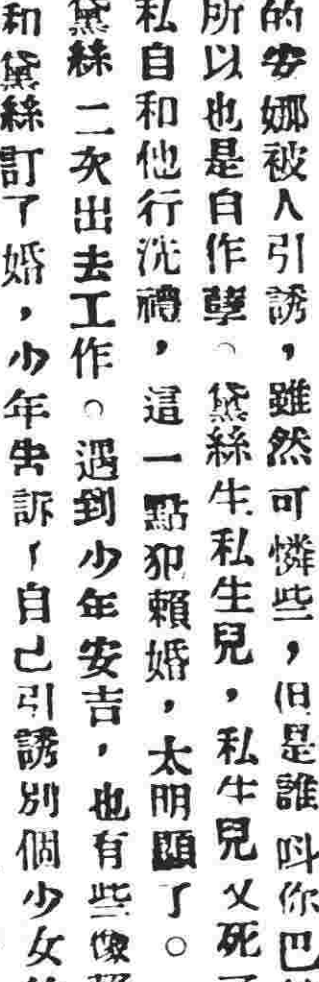 的安娜被人引誘，雖然可憐些，但是誰叫你巴
所以也是自作孽。黛絲生私生兒，私生兒又死了
私自和他行洗禮，這一點犯賴婚，太明顯了。
黛絲二次出去工作。遇到少年安吉，也有些像
和黛絲訂了婚，少年告訴了自己引誘別個少女